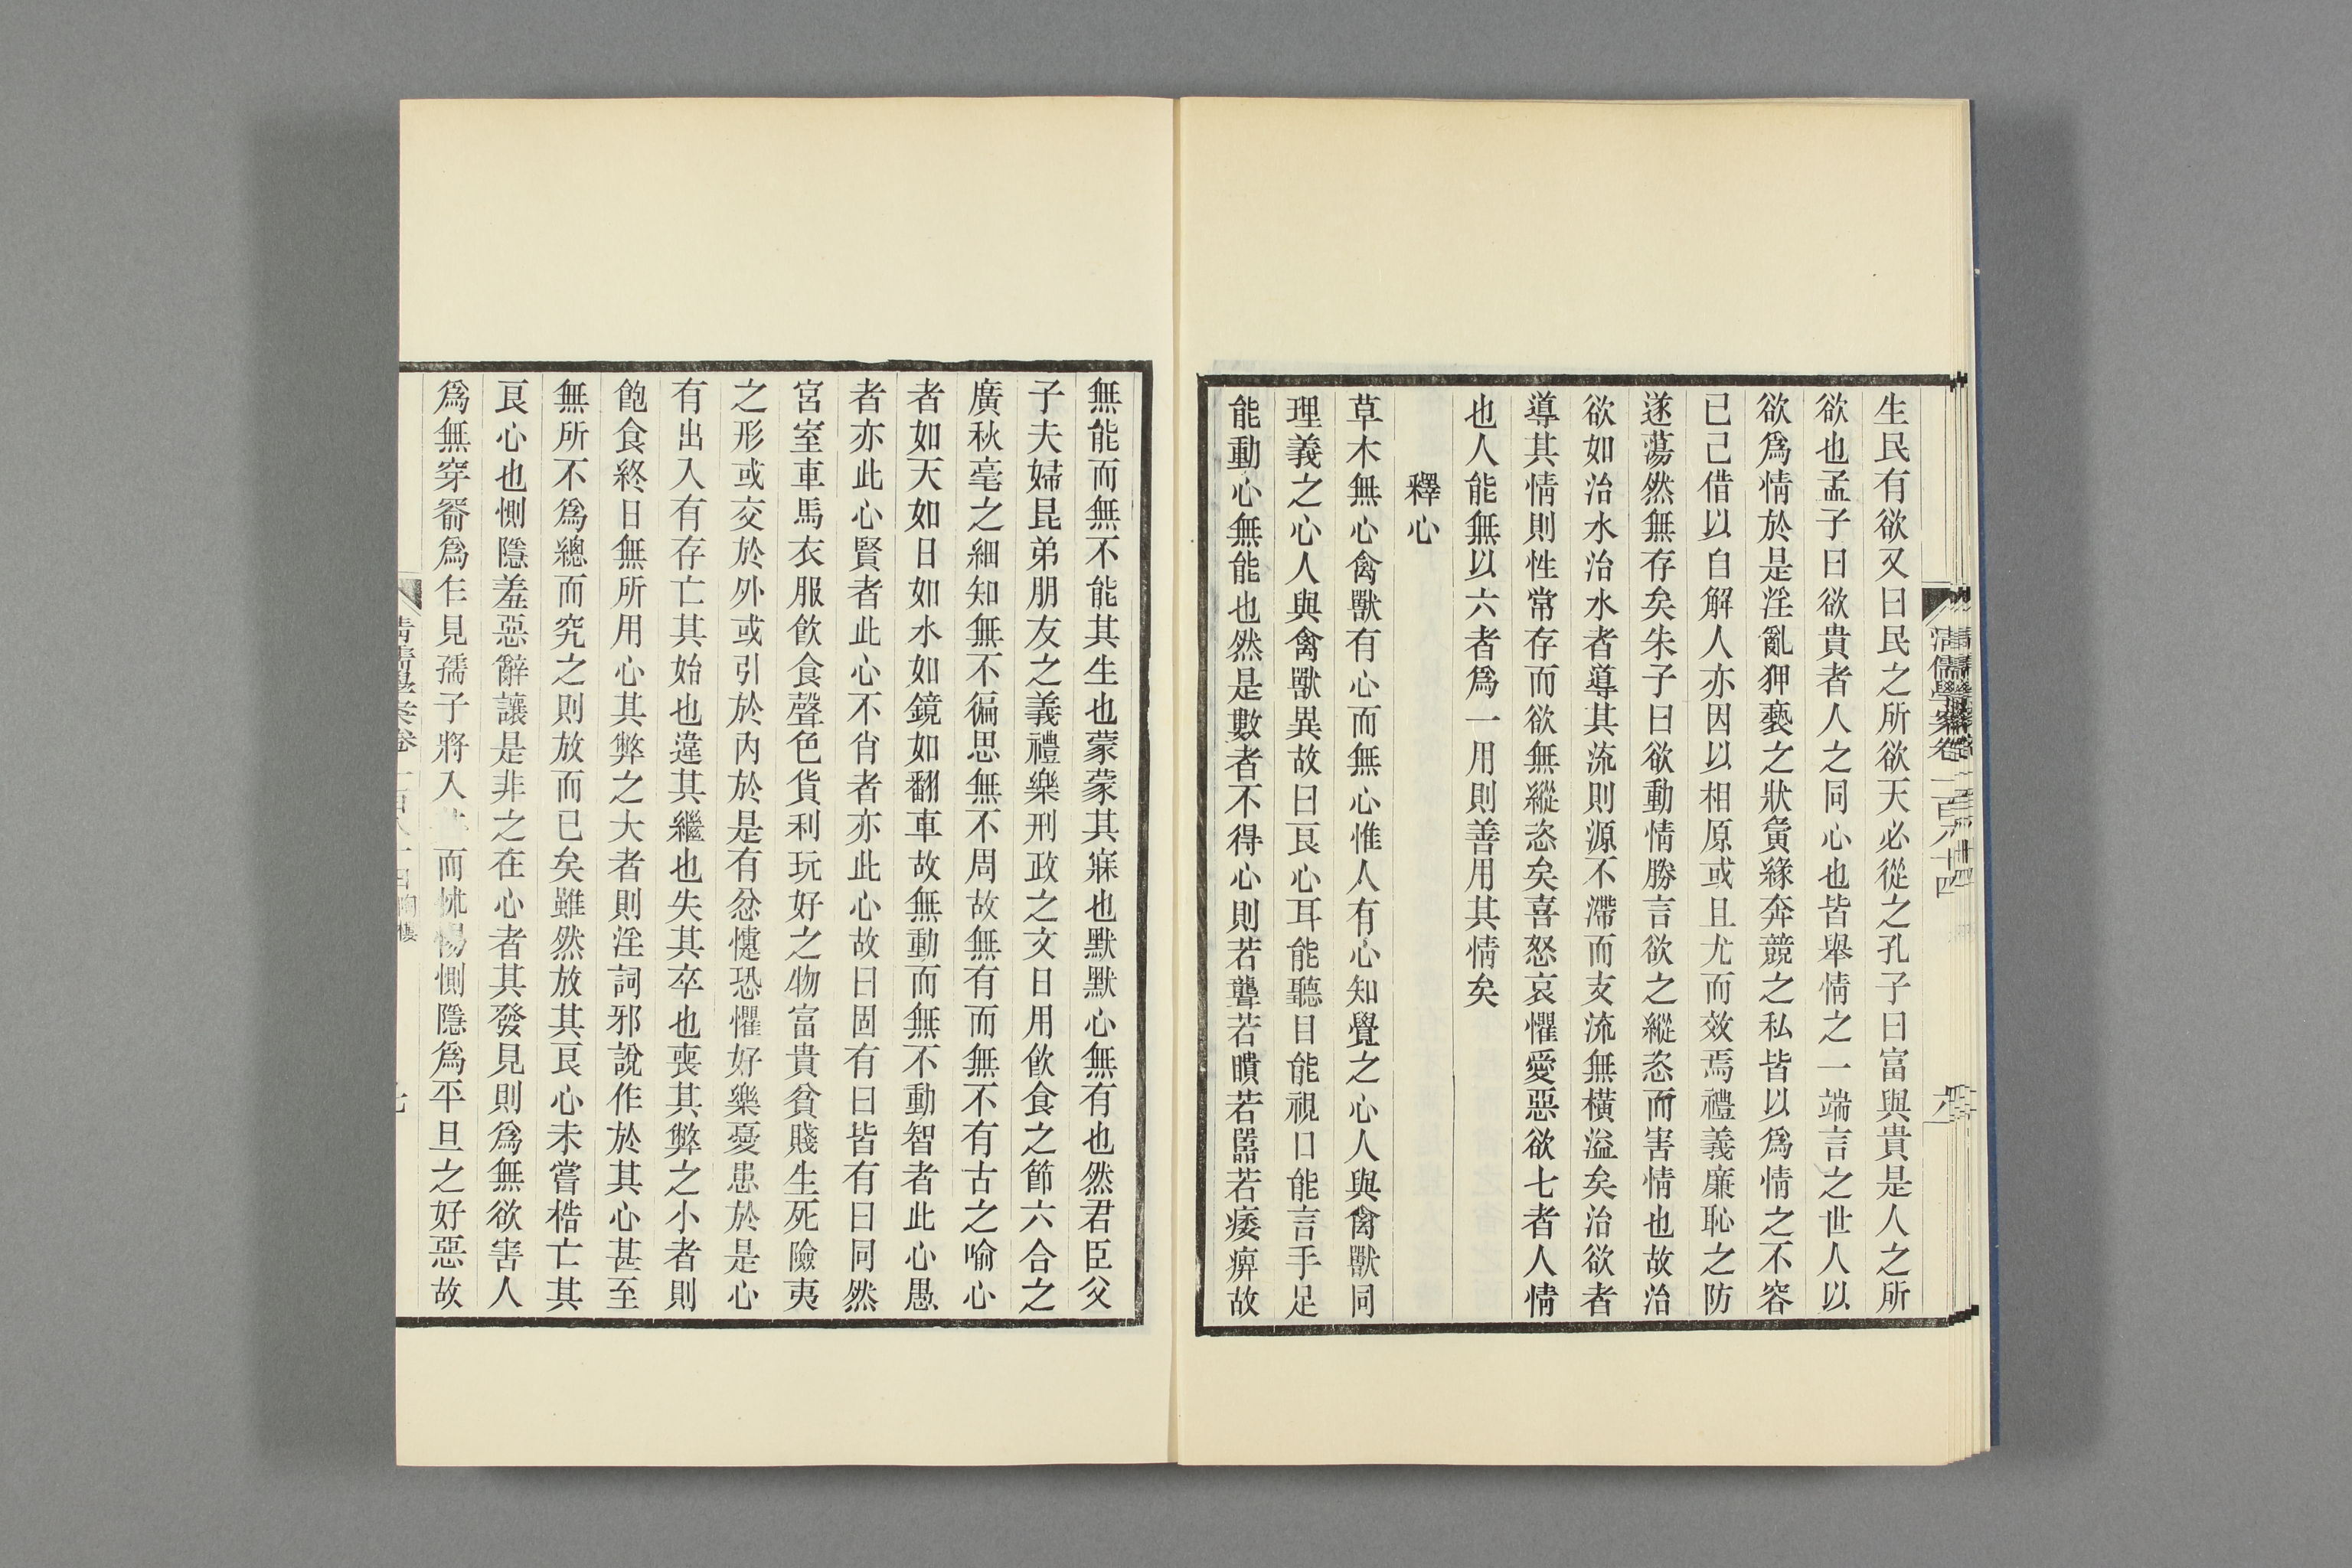 生民有欲又曰民之所欲天必從之孔子曰富與貴是人之所
欲也孟子曰欲貴者人之同心也皆舉情之一端言之世人以
欲爲情於是淫亂狎褻之狀夤緣奔競之私皆以爲情之不容
已己借以自解人亦因以相原或且尤而效焉禮義廉恥之防
遂蕩然無存矣朱子曰欲動情勝言欲之縱恣而害情也故治
欲如治水治水者導其流則源不滯而支流無橫溢矣治欲者
導其情則性常存而欲無縱恣矣喜怒哀懼愛惡欲七者人情
也人能無以六者爲一用則善用其情矣
釋心
草木無心禽獸有心而無心惟人有心知覺之心人與禽獸同
理義之心人與禽獸異故曰良心耳能聽目能視口能言手足
能動心無能也然是數者不得心則若聾若瞶若嚚若痿痹故
清儒學案卷一百八十四
無能而無不能其生也蒙蒙其寐也默默心無有也然君臣父
子夫婦昆弟朋友之義禮樂刑政之文日用飲食之節六合之
廣秋毫之細知無不徧思無不周故無有而無不有古之喻心
者如天如日如水如鏡如翻車故無動而無不動智者此心愚
者亦此心賢者此心不肖者亦此心故曰固有曰皆有曰同然
宮室車馬衣服飲食聲色貨利玩好之物富貴貧賤生死險夷
之形或交於外或引於內於是有忿懥恐懼好樂憂患於是心
有出入有存亡其始也違其繼也失其卒也喪其弊之小者則
飽食終日無所用心其弊之大者則淫詞邪說作於其心甚至
無所不爲總而究之則放而已矣雖然放其良心未嘗梏亡其
良心也惻隱羞惡辭讓是非之在心者其發見則爲無欲害人
爲無穿窬爲乍見孺子將入而怵惕惻隱爲平旦之好惡故